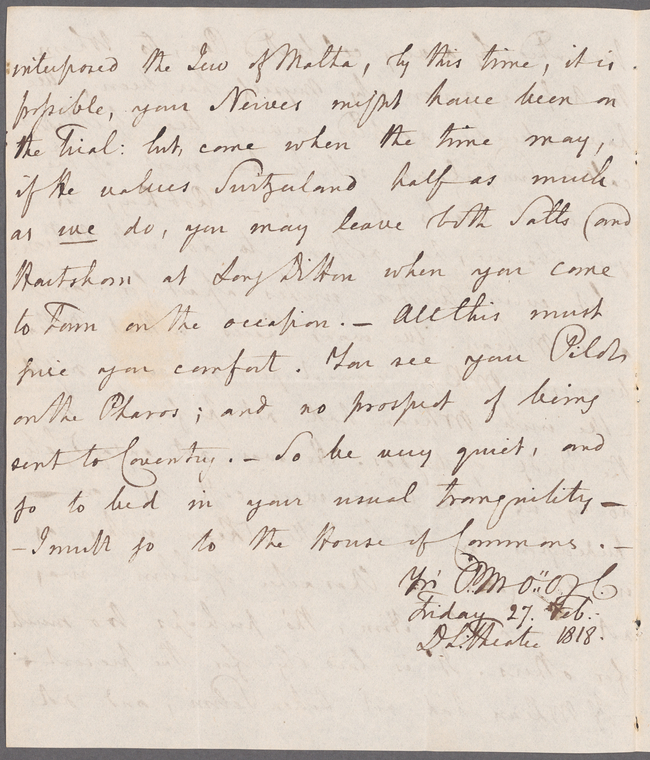 interposed the Jew of Malta, by this time, it is
possible, your Nerves might have been on
the Trial: but, come when the time may,
if He values Switzerland half as much
as we do, you may leave both Salts and
Hartshorn at Long Ditton when you come
to Town on the occasion. — All this must
give you comfort. You see your Pilots
on the Pharos; and no prospect of being
sent to Coventry. — So be very quiet, and
go to bed in your usual tranquility —
— I must go to the House of Commons. —
Yrs
Friday 27. Feb:
D L: Theatre 1818.